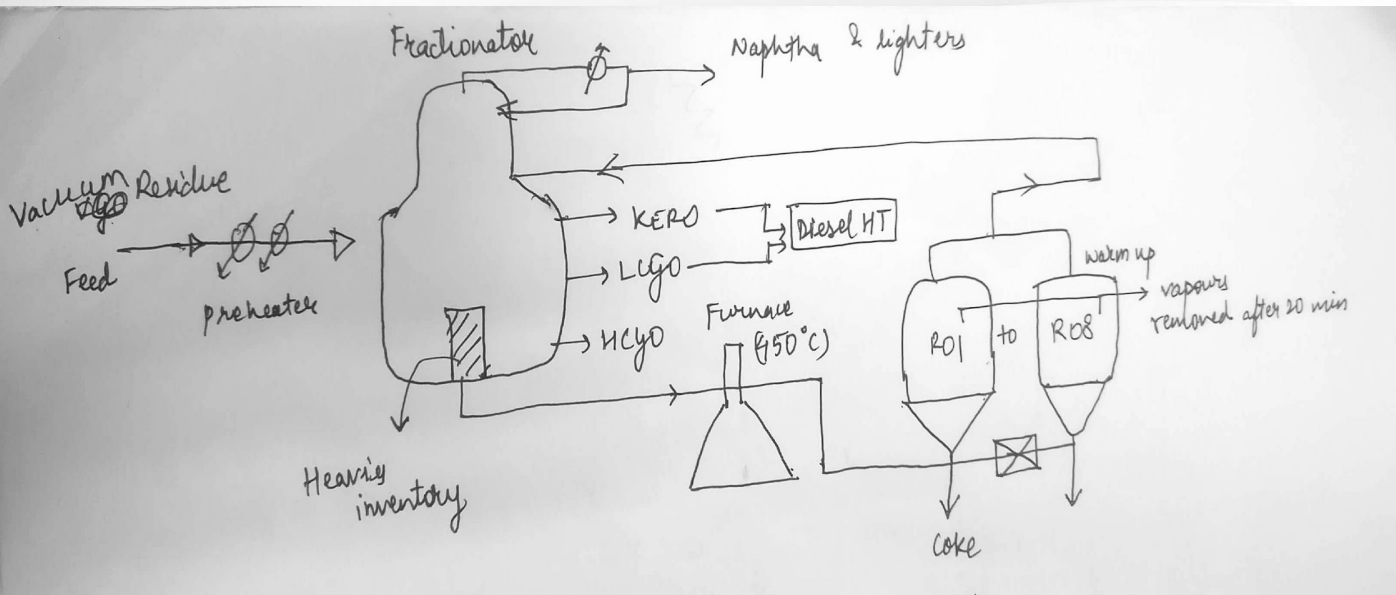 Fractionator
Naphtha & lighters
Vacuum Residue
Feed
preheater
KERO
LCGO
HCGO
Diesel HT
Furnace
(450°C)
Heavies
inventory
R01
to
R08
warm up
vapours
removed after 20 min
Coke